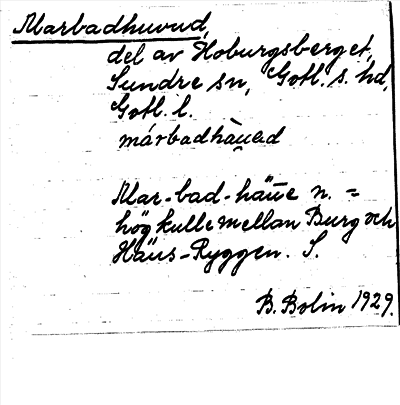 Marbadhuvud,
del av Hoburgsberget,
Sundre sn, Gotl. s. hd,
Gotl. l.
márbadhàu̯ed
Mar-bad-häue n. =
hög kulle mellan Burg och
Häus-Ryggen. S.
B. Bolin 1929.